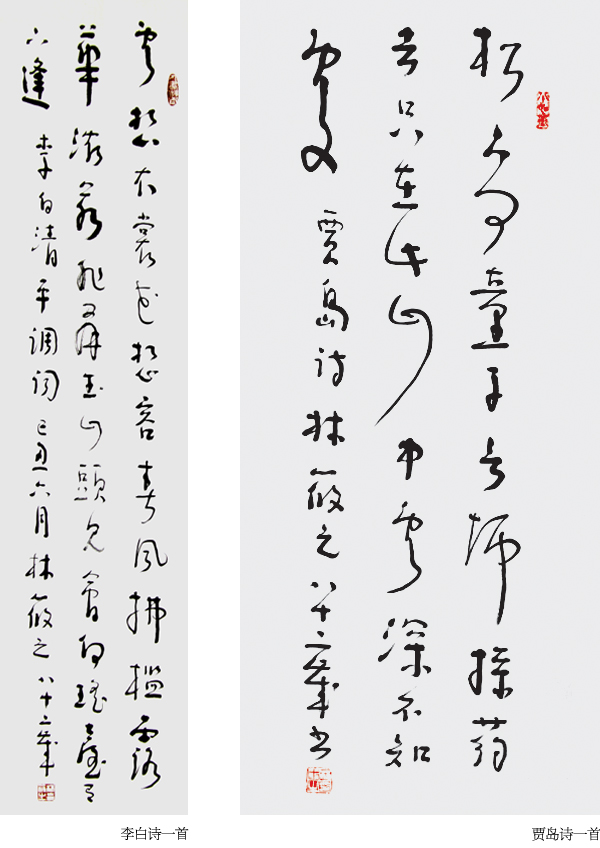 雲想衣裳花想容春风拂槛露
華浓若非群玉山頭见會向瑶臺月
下逢 李白清平调词 己丑六月 林筱之 八十二歲
李白诗一首
松下问童子言师採药
去只在此山中雲深不知
處 賈島诗 林筱之 八十二歲书
贾岛诗一首